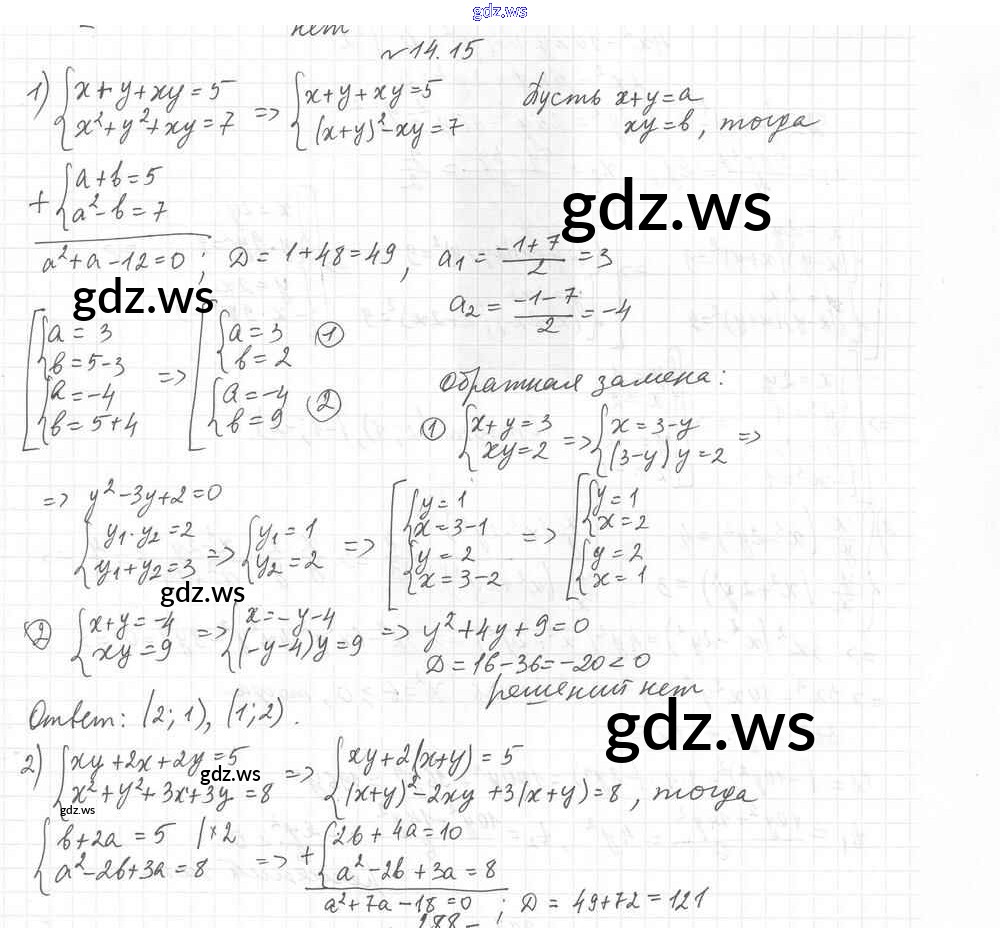 gdz.ws
нет
№14.15
1) {x+y+xy=5 {x²+y²+xy=7 => {x+y+xy=5 {(x+y)²-xy=7 Пусть x+y=a
xy=b, тогда
+ {a+b=5
{a²-b=7
gdz.ws
a²+a-12=0; D=1+48=49, a₁=(-1+7)/2=3
gdz.ws
a₂=(-1-7)/2=-4
[{a=3 {b=5-3 {a=-4 {b=5+4 => [{a=3 {b=2 ① {a=-4 {b=9 ②
Обратная замена:
① {x+y=3 {xy=2 => {x=3-y {(3-y)y=2 =>
=> y²-3y+2=0
{y₁·y₂=2 {y₁+y₂=3 => {y₁=1 {y₂=2 => [{y=1 {x=3-1 {y=2 {x=3-2 => [{y=1 {x=2 {y=2 {x=1
gdz.ws
② {x+y=-4 {xy=9 => {x=-y-4 {(-y-4)y=9 => y²+4y+9=0
D=16-36=-20<0
решений нет
Ответ: (2;1), (1;2).
gdz.ws
2) {xy+2x+2y=5 {x²+y²+3x+3y=8 => {xy+2(x+y)=5 {(x+y)²-2xy+3(x+y)=8, тогда
gdz.ws
gdz.ws
{b+2a=5 |×2 {a²-2b+3a=8 => + {2b+4a=10 {a²-2b+3a=8
a²+7a-18=0; D=49+72=121